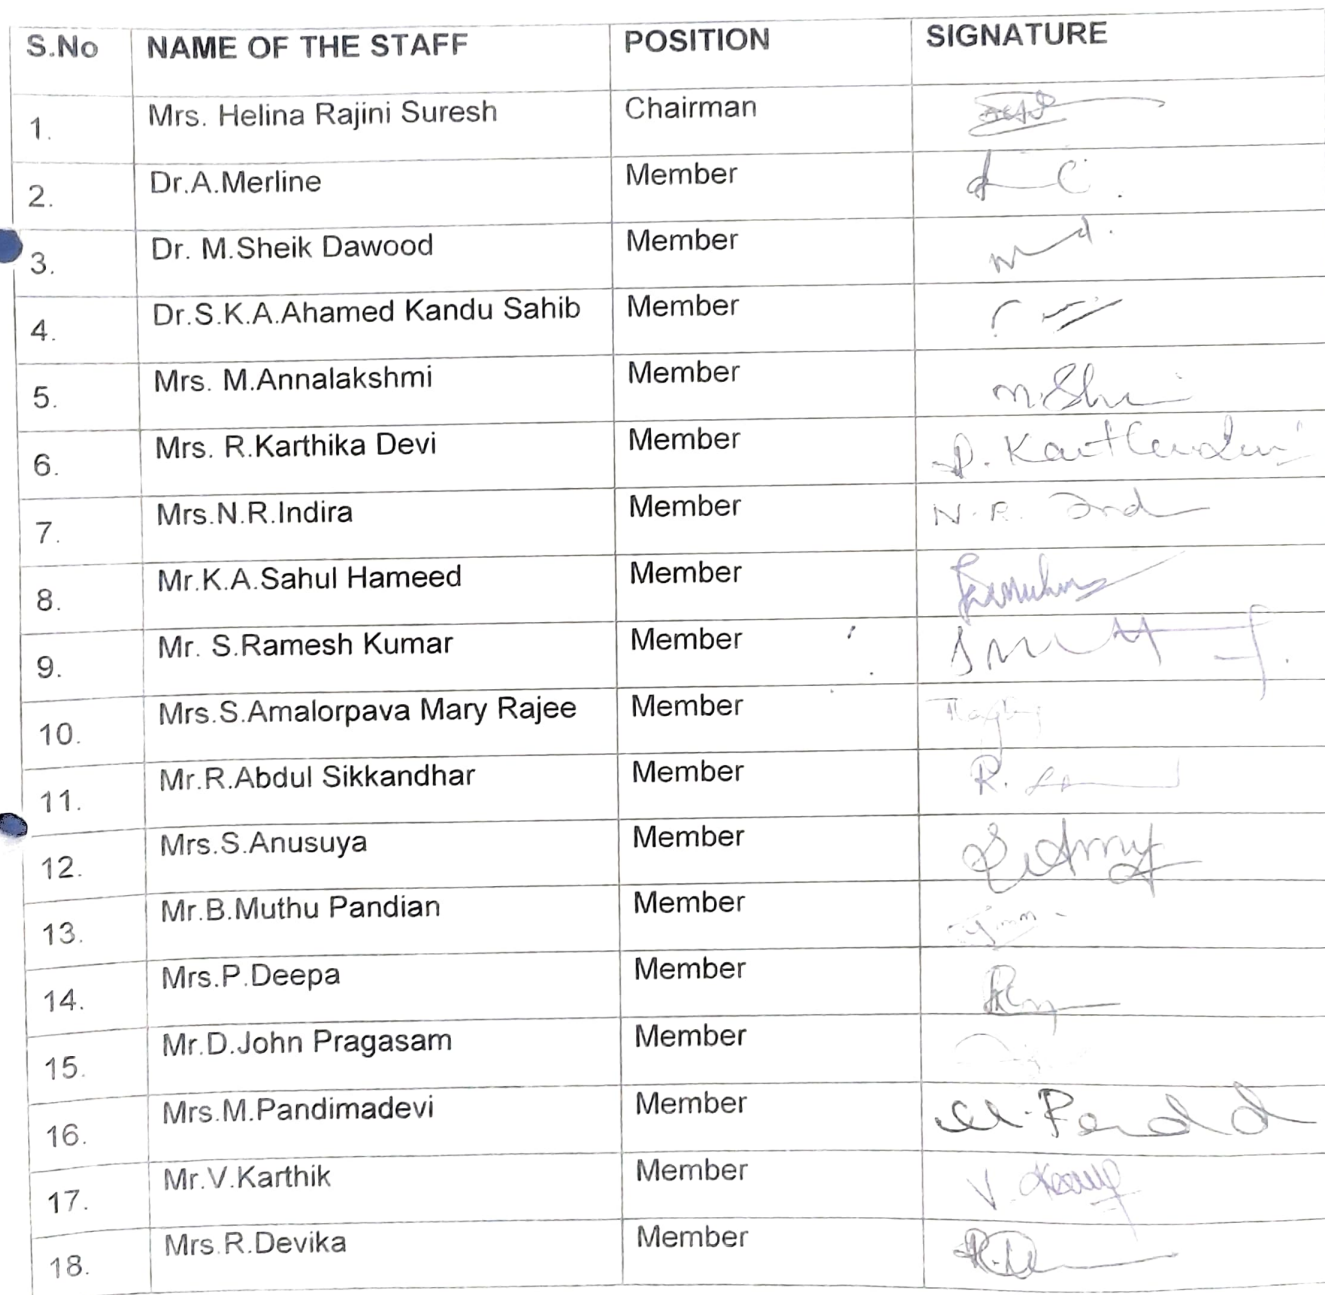 S.No NAME OF THE STAFF POSITION SIGNATURE
1. Mrs. Helina Rajini Suresh Chairman
2. Dr.A.Merline Member
3. Dr. M.Sheik Dawood Member
4. Dr.S.K.A.Ahamed Kandu Sahib Member
5. Mrs. M.Annalakshmi Member
6. Mrs. R.Karthika Devi Member
7. Mrs.N.R.Indira Member N.R. Ind
8. Mr.K.A.Sahul Hameed Member
9. Mr. S.Ramesh Kumar Member
10. Mrs.S.Amalorpava Mary Rajee Member
11. Mr.R.Abdul Sikkandhar Member R.
12. Mrs.S.Anusuya Member
13. Mr.B.Muthu Pandian Member
14. Mrs.P.Deepa Member
15. Mr.D.John Pragasam Member
16. Mrs.M.Pandimadevi Member
17. Mr.V.Karthik Member V.
18. Mrs.R.Devika Member